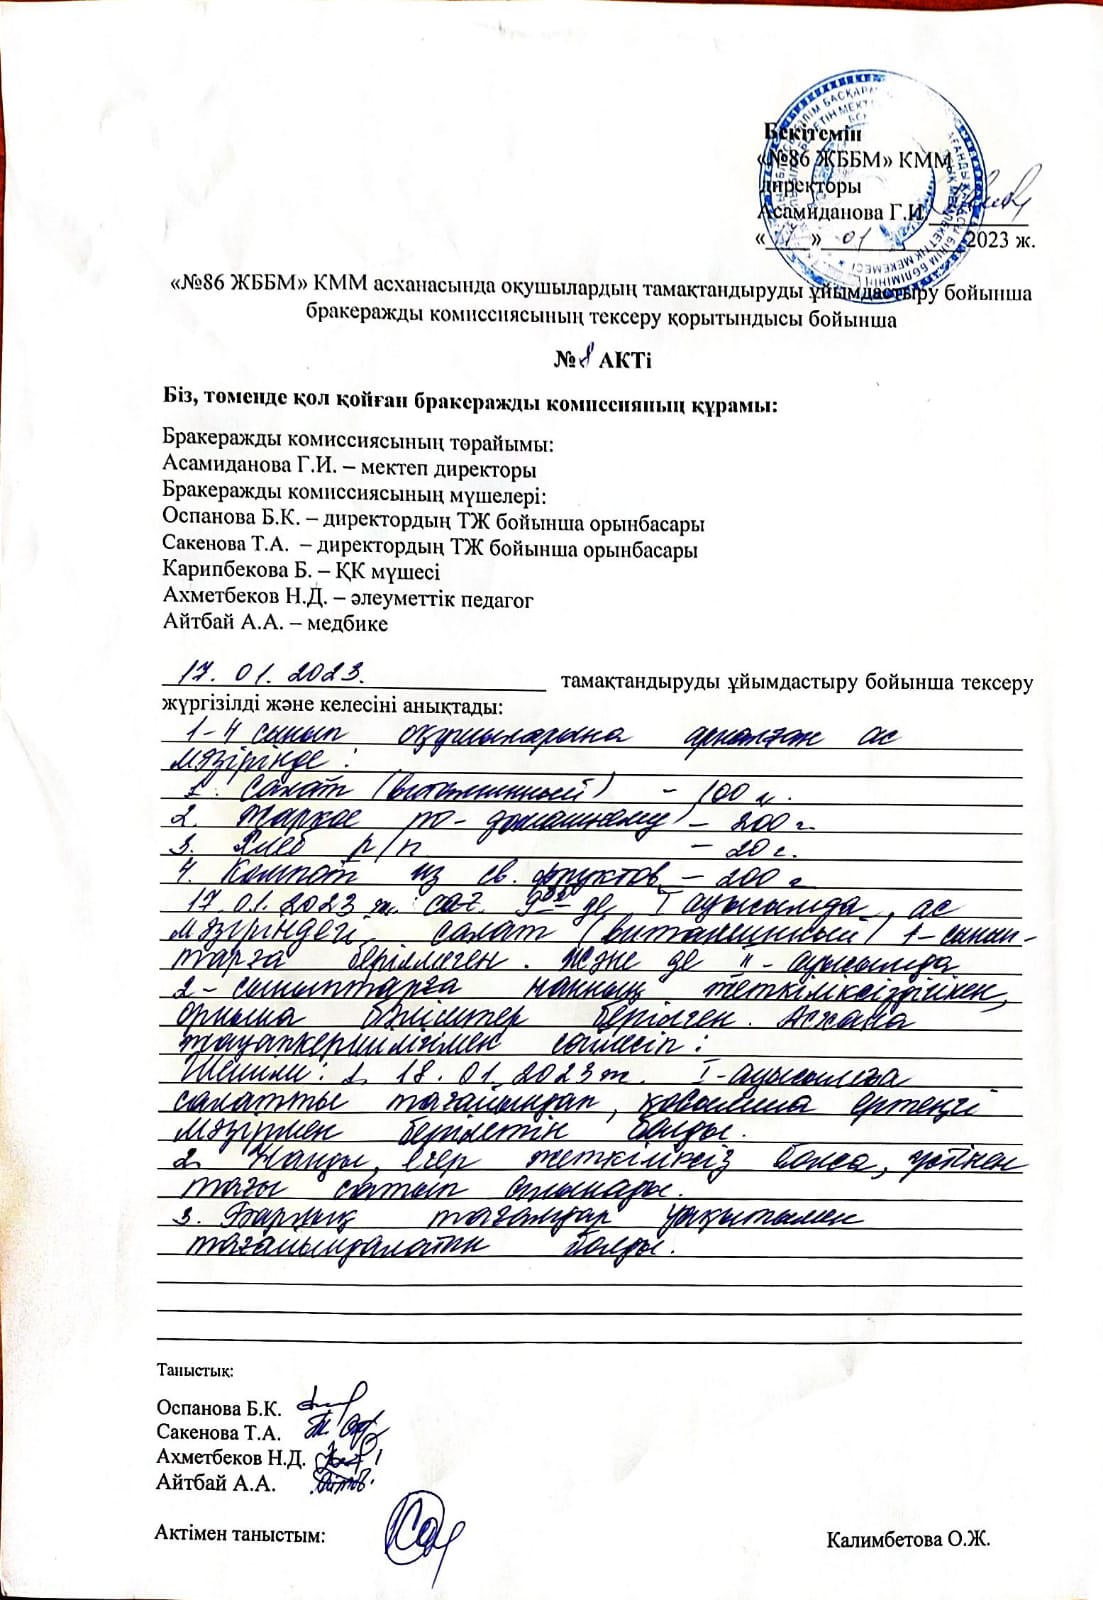 Бекітемін
«№86 ЖББМ» КММ
директоры
Асамиданова Г.И.
« » 01 2023 ж.
«№86 ЖББМ» КММ асханасында оқушылардың тамақтандыруды ұйымдастыру бойынша
бракеражды комиссиясының тексеру қорытындысы бойынша
№ 8 АКТі
Біз, төменде қол қойған бракеражды комиссияның құрамы:
Бракеражды комиссиясының төрайымы:
Асамиданова Г.И. – мектеп директоры
Бракеражды комиссиясының мүшелері:
Оспанова Б.К. – директордың ТЖ бойынша орынбасары
Сакенова Т.А. – директордың ТЖ бойынша орынбасары
Карипбекова Б. – ҚК мүшесі
Ахметбеков Н.Д. – әлеуметтік педагог
Айтбай А.А. – медбике
17. 01. 2023. тамақтандыруды ұйымдастыру бойынша тексеру
жүргізілді және келесіні анықтады:
1-4 сынып оқушыларына арналған ас
мәзірінде:
1. Салат (витаминный) - 100 г.
2. Жаркое по-домашнему – 200 г
3. Хлеб р/п – 20 г.
4. Компот из св. фруктов – 200 г
17.01.2023 ж. сағ. де I ауысымда, ас
мәзіріндегі салат (витаминный) 1-сынып-
тарға берілмеген. Және де II - ауысымда
2-сыныптарға нанның жеткіліксіздігінен,
орнына бәлiштер берілген. Асхана
жауапкершілігімен сөйлесіп:
Шешім: 1. 18.01.2023 ж. I-ауысымға
салатты тағайындап, қосымша ертеңгі
мәзірмен берілетін болды.
2. Нанды, егер жеткіліксіз болса, үстінен
тағы сатып алынады.
3. Барлық тағамдар уақытымен
тағайындалатын болды.
Таныстық:
Оспанова Б.К.
Сакенова Т.А.
Ахметбеков Н.Д.
Айтбай А.А.
Актімен таныстым: Калимбетова О.Ж.